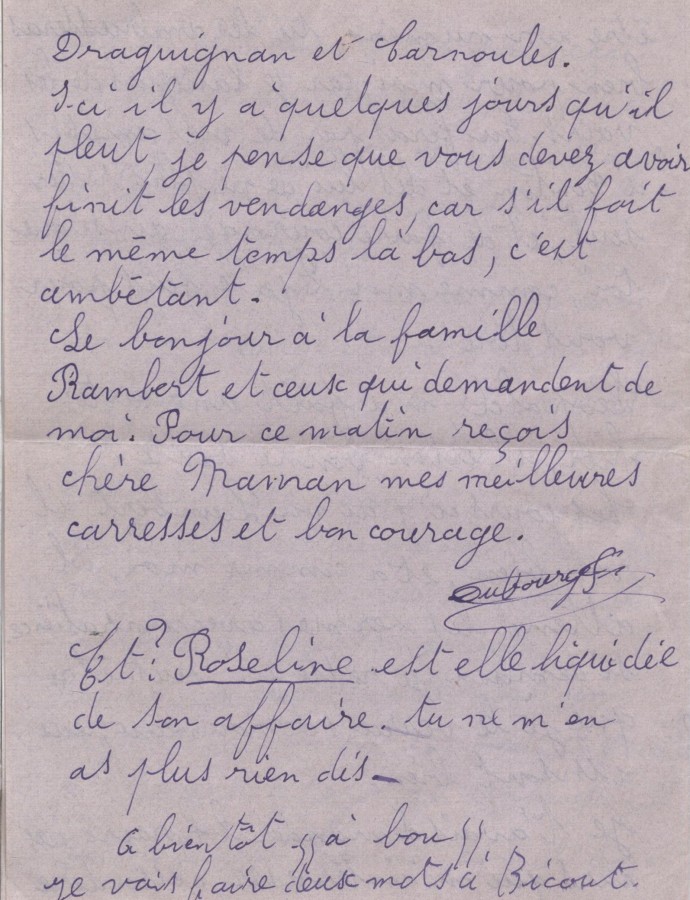 Draguignan et Carnoules.
Ici il y a quelques jours qu'il
pleut, je pense que vous devez avoir
finit les vendanges, car s'il fait
le même temps là bas, c'est
ambêtant.
Le bonjour à la famille
Rambert et ceux qui demandent de
moi. Pour ce matin reçois
chère Maman mes meilleures
carresses et bon courage.
Et? Roseline est elle liquidée
de son affaire. tu ne m'en
as plus rien dis_
A bientôt à
je vais faire deux mots à